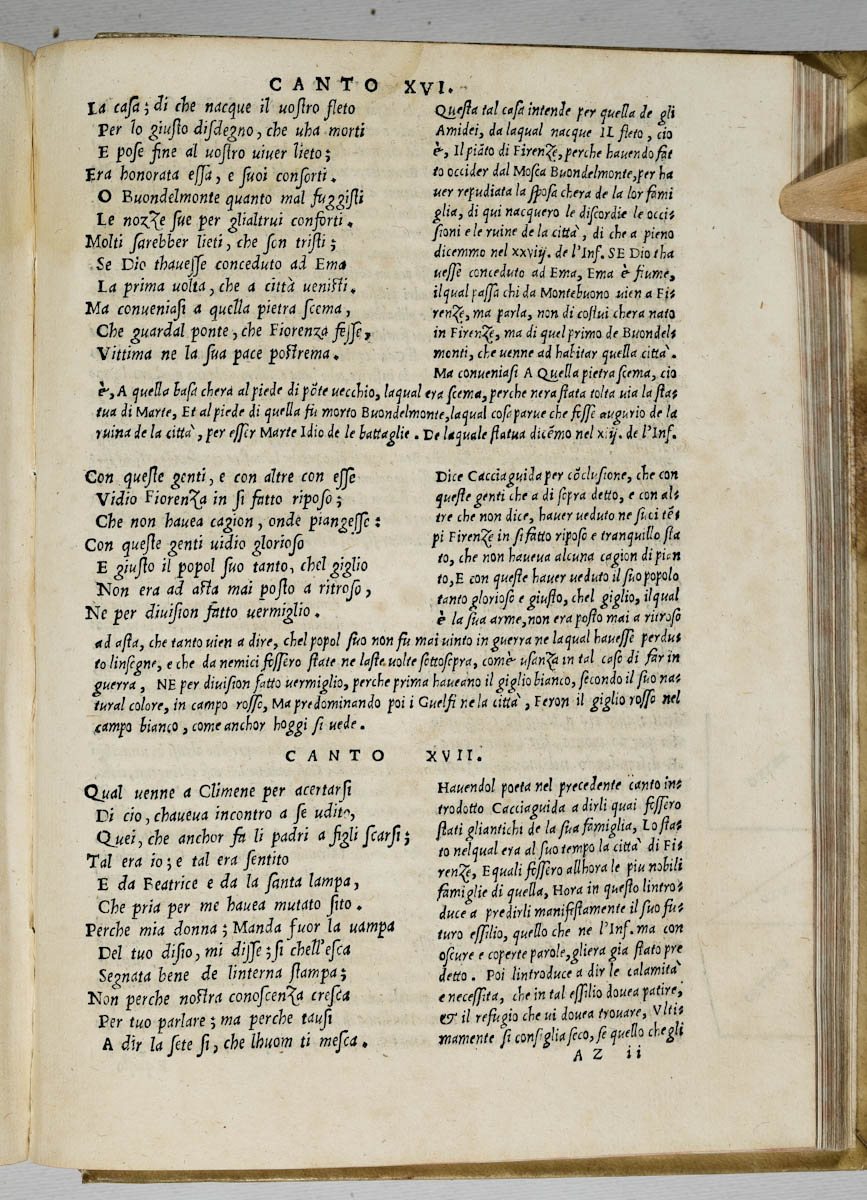 CANTO XVI.
La casa; di che nacque il uostro fleto
Per lo giusto disdegno, che uha morti
E pose fine al uostro uiuer lieto;
Era honorata essa, e suoi consorti.
O Buondelmonte quanto mal fuggisti
Le nozze sue per glialtrui conforti.
Molti sarebber lieti, che son tristi;
Se Dio thauesse conceduto ad Ema
La prima uolta, che a città uenisti.
Ma conueniasi a quella pietra scema,
Che guardal ponte, che Fiorenza fesse,
Vittima ne la sua pace postrema.
Questa tal casa intende per quella de gli
Amidei, da laqual nacque IL fleto, cio
è, Il piāto di Firenze, perche hauendo fat
to occider dal Mosca Buondelmonte, per ha
uer repudiata la sposa chera de la lor fami
glia, di qui nacquero le discordie le occi=
sioni e le ruine de la città, di che a pieno
dicemmo nel xxviij. de l'Inf. SE Dio tha
uesse conceduto ad Ema, Ema è fiume,
ilqual passa chi da Montebuono uien a Fi=
renze, ma parla, non di costui chera nato
in Firenze, ma di quel primo de Buondel=
monti, che uenne ad habitar quella città.
Ma conueniasi A Quella pietra scema, cio
è, A quella basa chera al piede di pōte uecchio, laqual era scema, perche nera stata tolta uia la sta=
tua di Marte, Et al piede di quella fu morto Buondelmonte, laqual cosa parue che fesse augurio de la
ruina de la città, per esser Marte Idio de le battaglie. De laquale statua dicēmo nel xiij. de l'Inf.
Con queste genti, e con altre con esse
Vidio Fiorenza in si fatto riposo;
Che non hauea cagion, onde piangesse:
Con queste genti uidio glorioso
E giusto il popol suo tanto, chel giglio
Non era ad asta mai posto a ritroso,
Ne per diuision fatto uermiglio.
Dice Cacciaguida per cōclusione, che con
queste genti che a di sopra detto, e con al=
tre che non dice, hauer ueduto ne suoi tē=
pi Firenze in si fatto riposo e tranquillo sta
to, che non haueua alcuna cagion di pian
to, E con queste hauer ueduto il suo popolo
tanto glorioso e giusto, chel giglio, ilqual
è la sua arme, non era posto mai a ritroso
ad asta, che tanto uien a dire, chel popol suo non fu mai uinto in guerra ne laqual hauesse perdu=
to linsegne, e che da nemici fessero state ne laste uolte sottosopra, com'è usanza in tal caso di far in
guerra, NE per diuision fatto uermiglio, perche prima haueano il giglio bianco, secondo il suo na=
tural colore, in campo rosso, Ma predominando poi i Guelfi ne la città, Feron il giglio rosso nel
campo bianco, come anchor hoggi si uede.
CANTO XVII.
Qual uenne a Climene per acertarsi
Di cio, chaueua incontro a se udito,
Quei, che anchor fa li padri a figli scarsi;
Tal era io; e tal era sentito
E da Beatrice e da la santa lampa,
Che pria per me hauea mutato sito.
Perche mia donna; Manda fuor la uampa
Del tuo disio, mi disse; si chell'esca
Segnata bene de linterna stampa;
Non perche nostra conoscenza cresca
Per tuo parlare; ma perche tausi
A dir la sete si, che lhuom ti mesca.
Hauendol poeta nel precedente canto in=
trodotto Cacciaguida a dirli quai fessero
stati gliantichi de la sua famiglia, Lo sta=
to nelqual era al suo tempo la città di Fi=
renze, E quali fessero allhora le piu nobili
famiglie di quella, Hora in questo lintro=
duce a predirli manifestamente il suo fu=
turo essilio, quello che ne l'Inf. ma con
oscure e coperte parole, gliera gia stato pre
detto. Poi lintroduce a dir le calamità
e necessita, che in tal essilio douea patire,
& il refugio che ui douea trouare, Vlti=
mamente si consiglia seco, se quello che gli
AZ ii